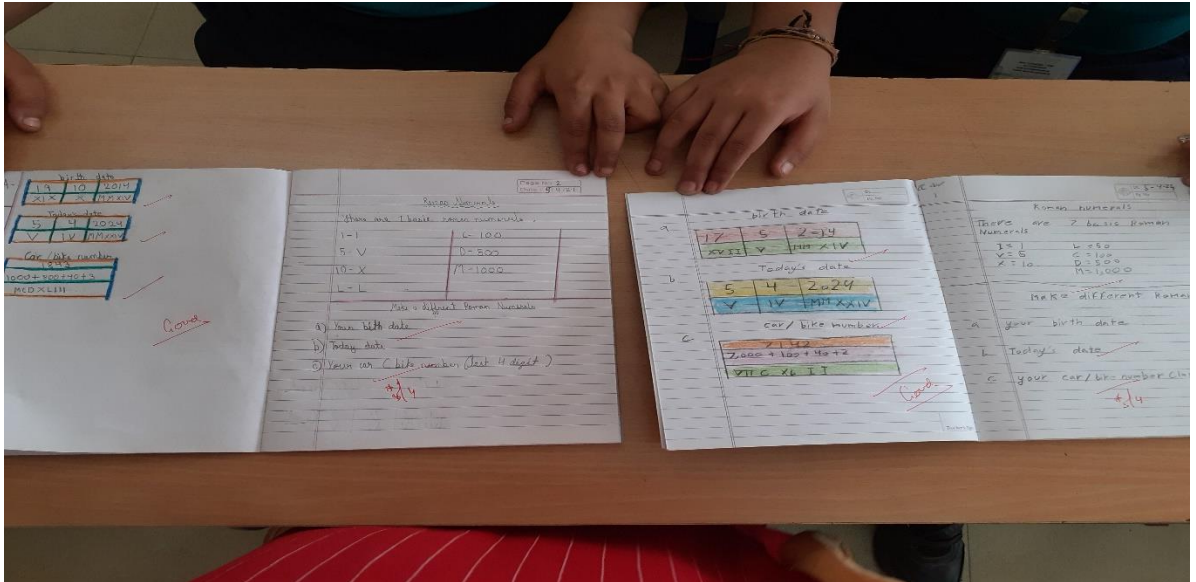 birth date
19 10 2014
XIX X MMXIV
Today's date
5 4 2024
V IV MMXXIV
Car/bike number
1000+500+40+3
MCDXLIII
Good
Roman Numerals
There are 7 basic roman numerals.
1-I C-100
5-V D-500
10-X M-1000
L-L
Make a different Roman Numerals
a) Your birth date
b) Today date
c) Your car C bike number (last 4 digit)
birth date
a
17 5 2014
XVII V MM XIV
Today's date
b
5 4 2024
V IV MMXXIV
car/bike number
c
2142
2,000 + 100 + 40 + 2
Good
Roman numerals
There are 7 basic Roman
Numerals
I = 1 L = 50
V = 5 C = 100
X = 10 D = 500
M = 1,000
Make different Roman
a your birth date
b. Today's date
c your car/bike number